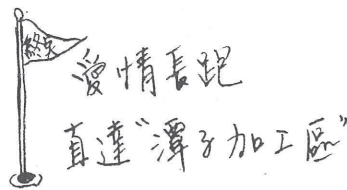 終点
愛情長跑
直達"潭子加工區"